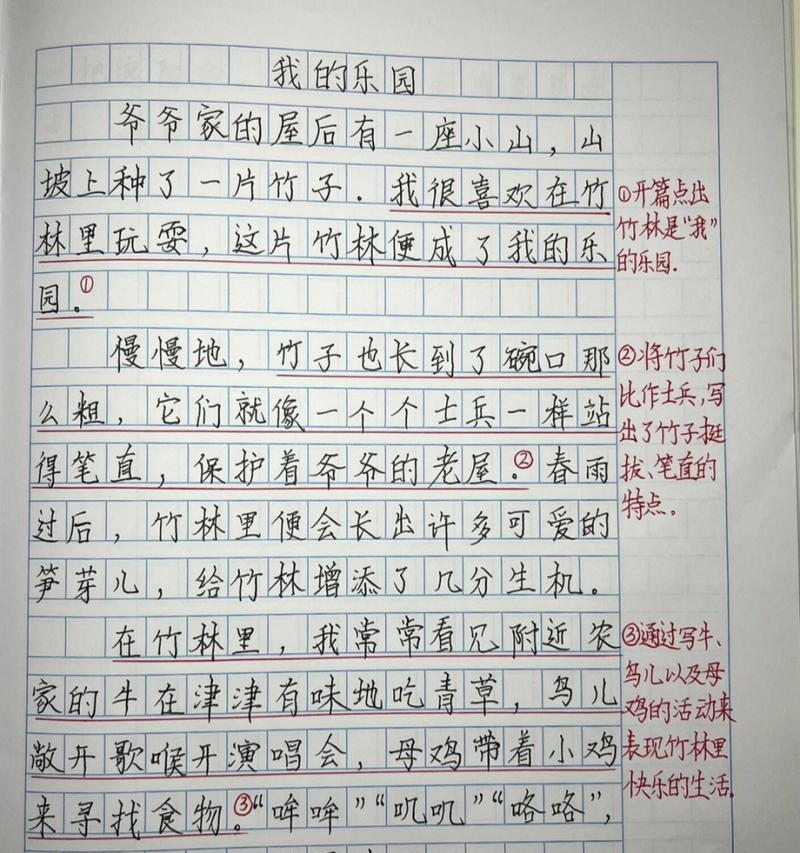 我的乐园
爷爷家的屋后有一座小山，山
坡上种了一片竹子．我很喜欢在竹
林里玩耍，这片竹林便成了我的乐
园。①
慢慢地，竹子也长到了碗口那
么粗，它们就像一个个士兵一样站
得笔直，保护着爷爷的老屋．②春雨
过后，竹林里便会长出许多可爱的
笋芽儿，给竹林增添了几分生机。
在竹林里，我常常看见附近农
家的牛在津津有味地吃青草，鸟儿
敞开歌喉开演唱会，母鸡带着小鸡
来寻找食物。③“哞哞”“叽叽”“咯咯”，
①开篇点出
竹林是“我”
的乐园.
②将竹子们
比作士兵,写
出了竹子挺
拔、笔直的
特点。
③通过写牛、
鸟儿以及母
鸡的活动来
表现竹林里
快乐的生活.